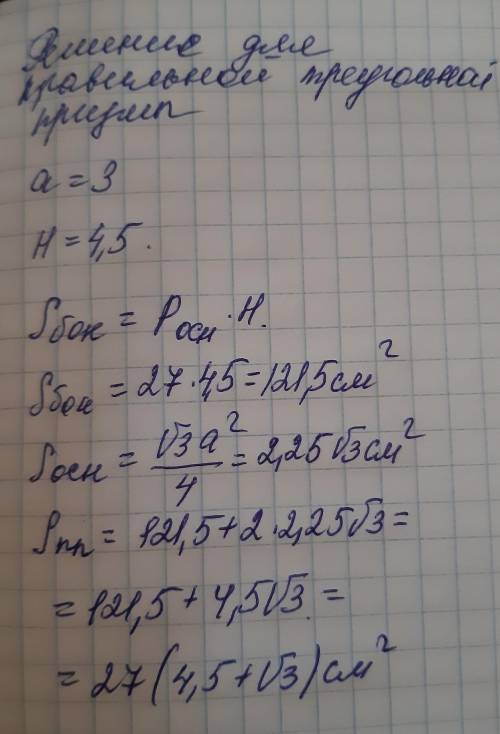 Решение для
правильной треугольной
призмы
a = 3
H = 4,5.
Sбок = Pосн · H.
Sбок = 27 · 4,5 = 121,5 см²
Sосн = √3 a² / 4 = 2,25√3 см²
Sпп = 121,5 + 2 · 2,25√3 =
= 121,5 + 4,5√3. =
= 27 (4,5 + √3) см²